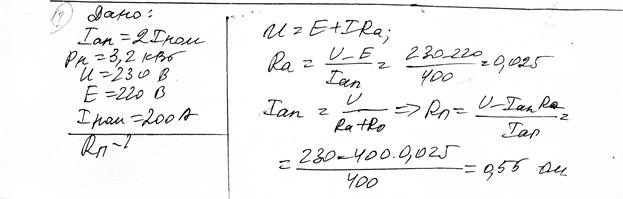 Дано:
Iап = 2Iном
Pн = 3,2 кВт
U = 230 В
E = 220 В
Iном = 200 А
Rп - ?
U = E + IRa;
Ra = \frac{U - E}{Iап} = \frac{230-220}{400} = 0,025
Iап = \frac{U}{Ra + Rп} => Rп = \frac{U - Iап Ra}{Iап} =
= \frac{230 - 400 · 0,025}{400} = 0,55 Ом